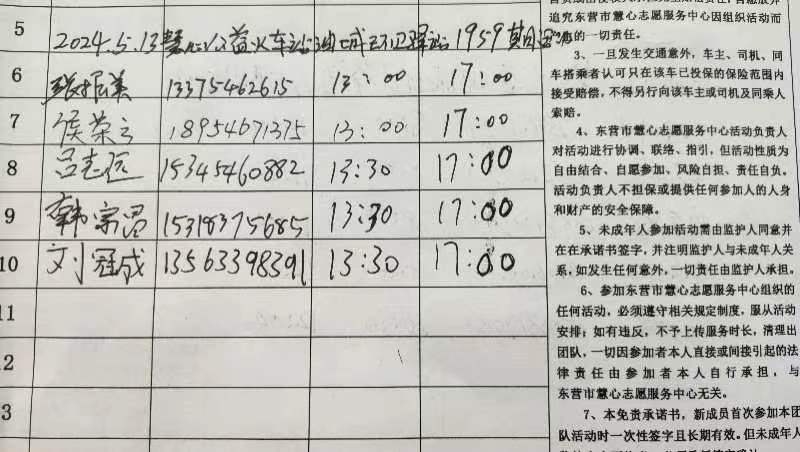 5
2024.5.13慧心公益火车站油城环卫驿站1959期
6 张振美 13375462615 13:00 17:00
7 侯荣云 18954671375 13:00 17:00
8 吕志远 15345460882 13:30 17:00
9 韩宗昌 15318375685 13:30 17:00
10 刘冠成 13563398391 13:30 17:00
11
12
13
追究东营市慧心志愿服务中心因组织活动而
的一切责任。
3、一旦发生交通意外，车主、司机、同
车搭乘者认可只在该车已投保的保险范围内
接受赔偿，不得另行向该车主或司机及同乘人
索赔。
4、东营市慧心志愿服务中心活动负责人
对活动进行协调、联络、指引，但活动性质为
自由结合、自愿参加、风险自担、责任自负。
活动负责人不担保或提供任何参加人的人身
和财产的安全保障。
5、未成年人参加活动需由监护人同意并
在在承诺书签字，并注明监护人与未成年人关
系，如发生任何意外，一切责任由监护人承担。
6、参加东营市慧心志愿服务中心组织的
任何活动，必须遵守相关规定制度，服从活动
安排；如有违反，不予上传服务时长，清理出
团队，一切因参加者本人直接或间接引起的法
律责任由参加者本人自行承担，与
东营市慧心志愿服务中心无关。
7、本免责承诺书，新成员首次参加本团
队活动时一次性签字且长期有效。但未成年人